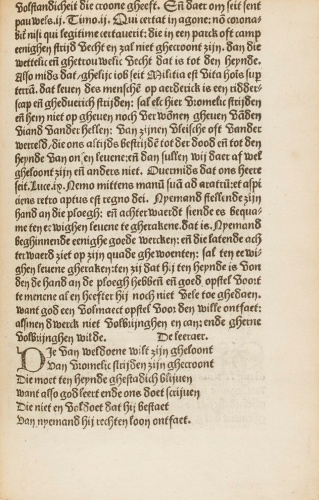 volstandicheit die croone gheeft. En̄ daer om seit sent
pauwels.ij. Timo.ij. Qui certat in agone: nō corona-
bit nisi qui legitime certauerit: die in een parck oft camp
eenighen strijd vecht en zal niet ghecroont zijn. dan die
wettelic en̄ ghetrouwelic vecht dat is tot den heynde.
Also mids dat ghelijc iob seit Militia est vita hoīs sup
terrā. dat leuen des menschē op aerderick is een ridder-
scap en̄ gheduerich strijden: sal elc hier vromelic strijden
en̄ hem niet op gheuen noch verwōnen gheuen vādē
viand vander hellen: van zijnen vleische oft vander
werreld, die ons altijds bestrijdē tot der dood en̄ tot den
heynde van onsen leuene: en̄ dan sullen wij daer af wel
gheloont zijn en̄ anders niet. Ouermids dat ons heere
seit. Luce.ix. Nemo mittens manū suā ad aratrū: et aspi
ciens retro aptus est regno dei. Nyemand stellende zijn
hand an die ploegh: en̄ achterwaerd siende es bequa-
me ten eewighen leuene te gherakene. dat is. Nyemand
beghinnende eenighe goede wercken: en̄ die latende ach
terwaerd ziet op zijn quade ghewoenten: sal ten eewi-
ghen leuene gheraken: ten zij dat hij ten heynde is von
den de hand an de ploegh hebbē en̄ goed opstel voort
te nemene al en heefter hij noch niet vele toe ghedaen.
want god een volmaect opstel voor den wille ontfaet:
als men dwerck niet volbringhen en can: ende gherne
volbrijnghen wilde. De leeraer.
Die van weldoene wilt zijn gheloont
Van vromelic strijden zijn ghecroont
Die moet ten heynde ghestadich blijuen
want also god leert ende ons doet scrijuen
Die niet en voldoet dat hij bestaet
van nyemand hij rechten loon ontfaet.